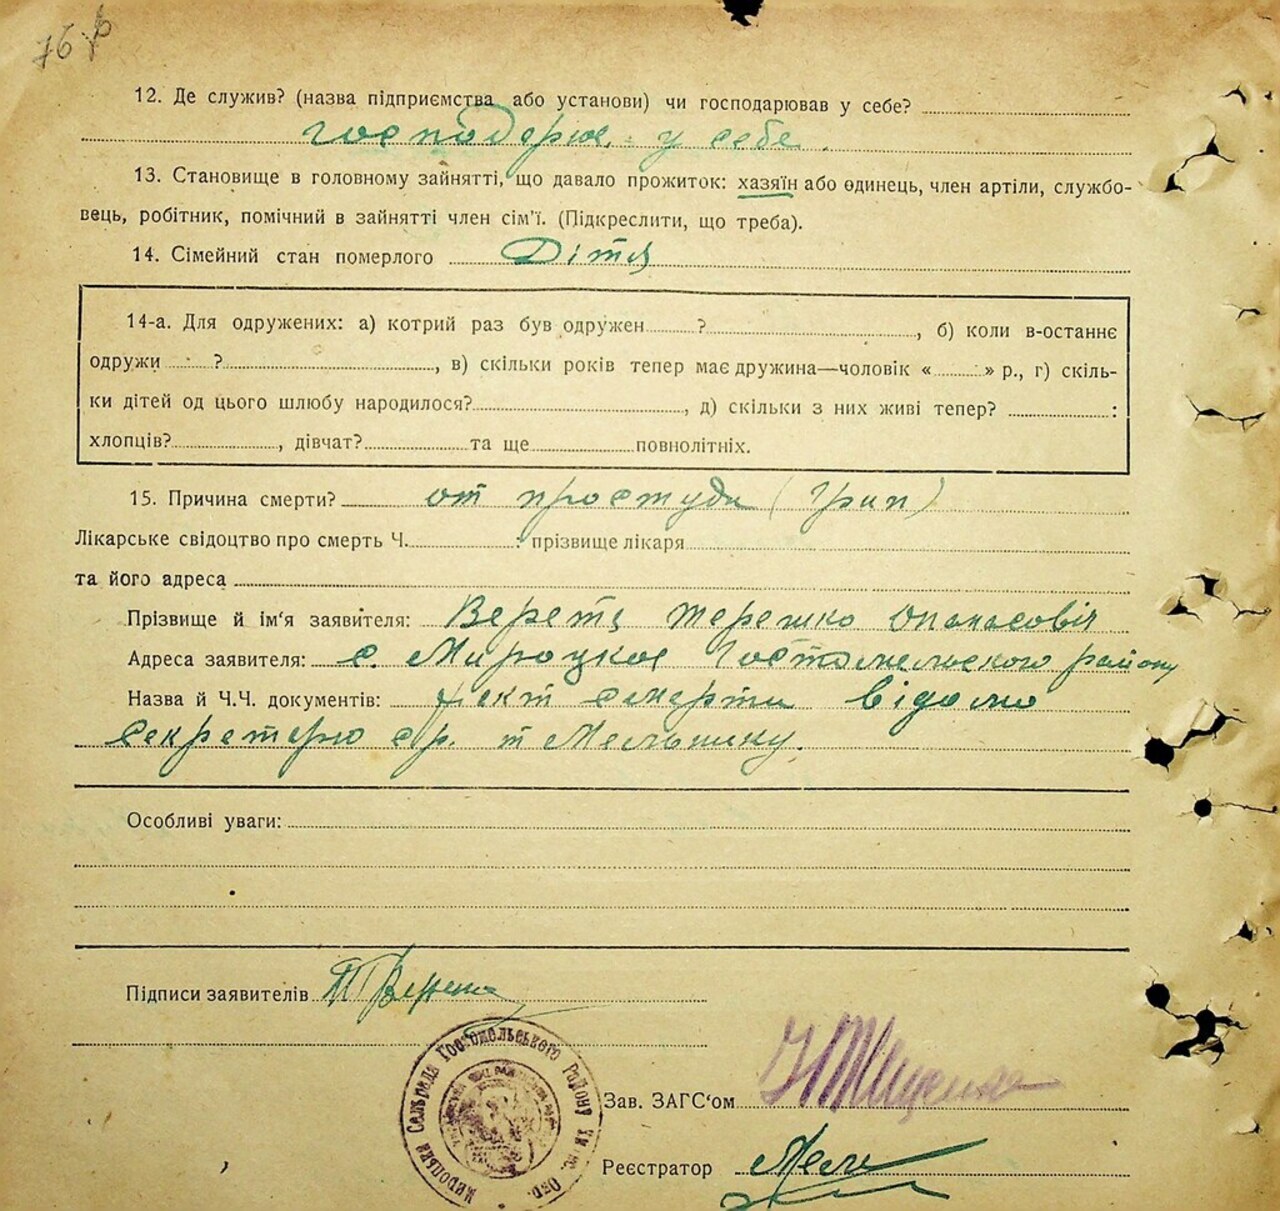 76
12. Де служив? (назва підприємства або установи) чи господарював у себе?
у себе.
13. Становище в головному зайнятті, що давало прожиток: хазяїн або одинець, член артіли, службо-
вець, робітник, помічний в зайнятті член сім'ї. (Підкреслити, що треба).
14. Сімейний стан померлого Дітя
14-а. Для одружених: а) котрий раз був одружен ? , б) коли в-останнє
одружи ? , в) скільки років тепер має дружина—чоловік « » р., г) скіль-
ки дітей од цього шлюбу народилося? , д) скільки з них живі тепер? :
хлопців? , дівчат? та ще повнолітніх.
15. Причина смерти? от простуди (Грип)
Лікарське свідоцтво про смерть Ч. : прізвище лікаря
та його адреса
Прізвище й ім'я заявителя: Верета Терешко Опанасовіч
Адреса заявителя: с. Мироцкое Гостомельского району
Назва й Ч.Ч. документів: факт смерти відомо
секретарю с/р. т Мельнику.
Особливі уваги:
Підписи заявителів Т Верета
Сельрада Гостомельського Району
Зав. ЗАГС'ом
Реєстратор Мель